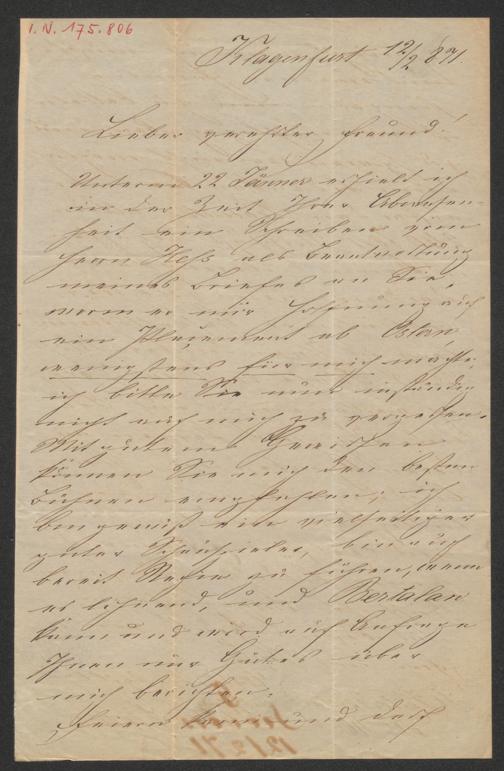 I. N. 175.806
Klagenfurt 12/2 871.
Lieber verehrter Freund!
Unterm 22 Jänner erhielt ich
in der Zeit Ihrer Abwesen-
heit ein Schreiben vom
Herrn Hess als Beantwortung
meines Briefes an Sie,
worin er mir Hoffnung auf
ein Plaçement ab Ostern,
wenigstens für mich machte;
ich bitte Sie nun inständig
nicht auf mich zu vergessen.
Mit gutem Gewissen
können Sie mich den besten
Bühnen empfehlen; ich
bin gewiß ein vielseitiger
guter Schauspieler, bin auch
bereit Regie zu führen, wenn
es lohnend, und Bertalan
kann und wird auf Anfrage
Ihnen nur Gutes über
mich berichten.
und
12/2 71